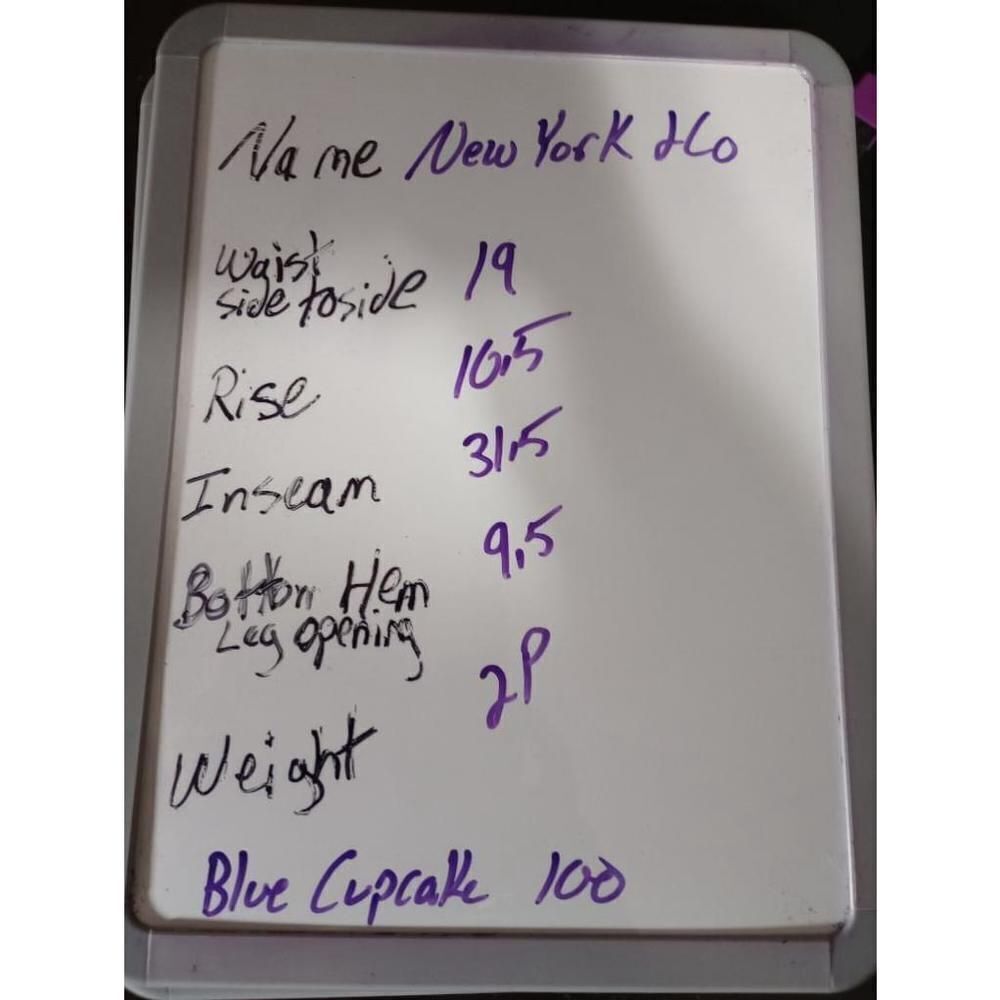 Name New York &Co
Waist
side to side 19
Rise 10.5
Inseam 31.5
Bottom Hem 9.5
Leg opening
Weight 2P
Blue Cupcake 100